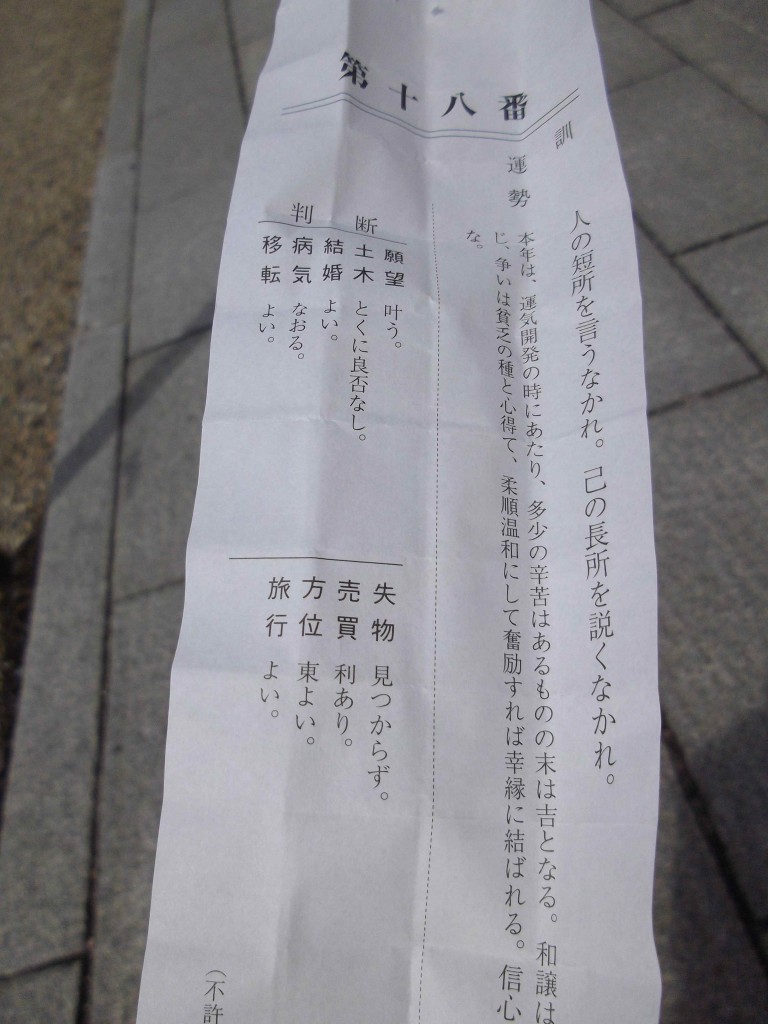 第十八番
訓
人の短所を言うなかれ。己の長所を説くなかれ。
運勢
本年は、運気開発の時にあたり、多少の辛苦はあるものの末は吉となる。和譲は
じ、争いは貧乏の種と心得て、柔順温和にして奮励すれば幸縁に結ばれる。信心
な。
判断
願望 叶う。
土木 とくに良否なし。
結婚 よい。
病気 なおる。
移転 よい。
失物 見つからず。
売買 利あり。
方位 東よい。
旅行 よい。
(不許